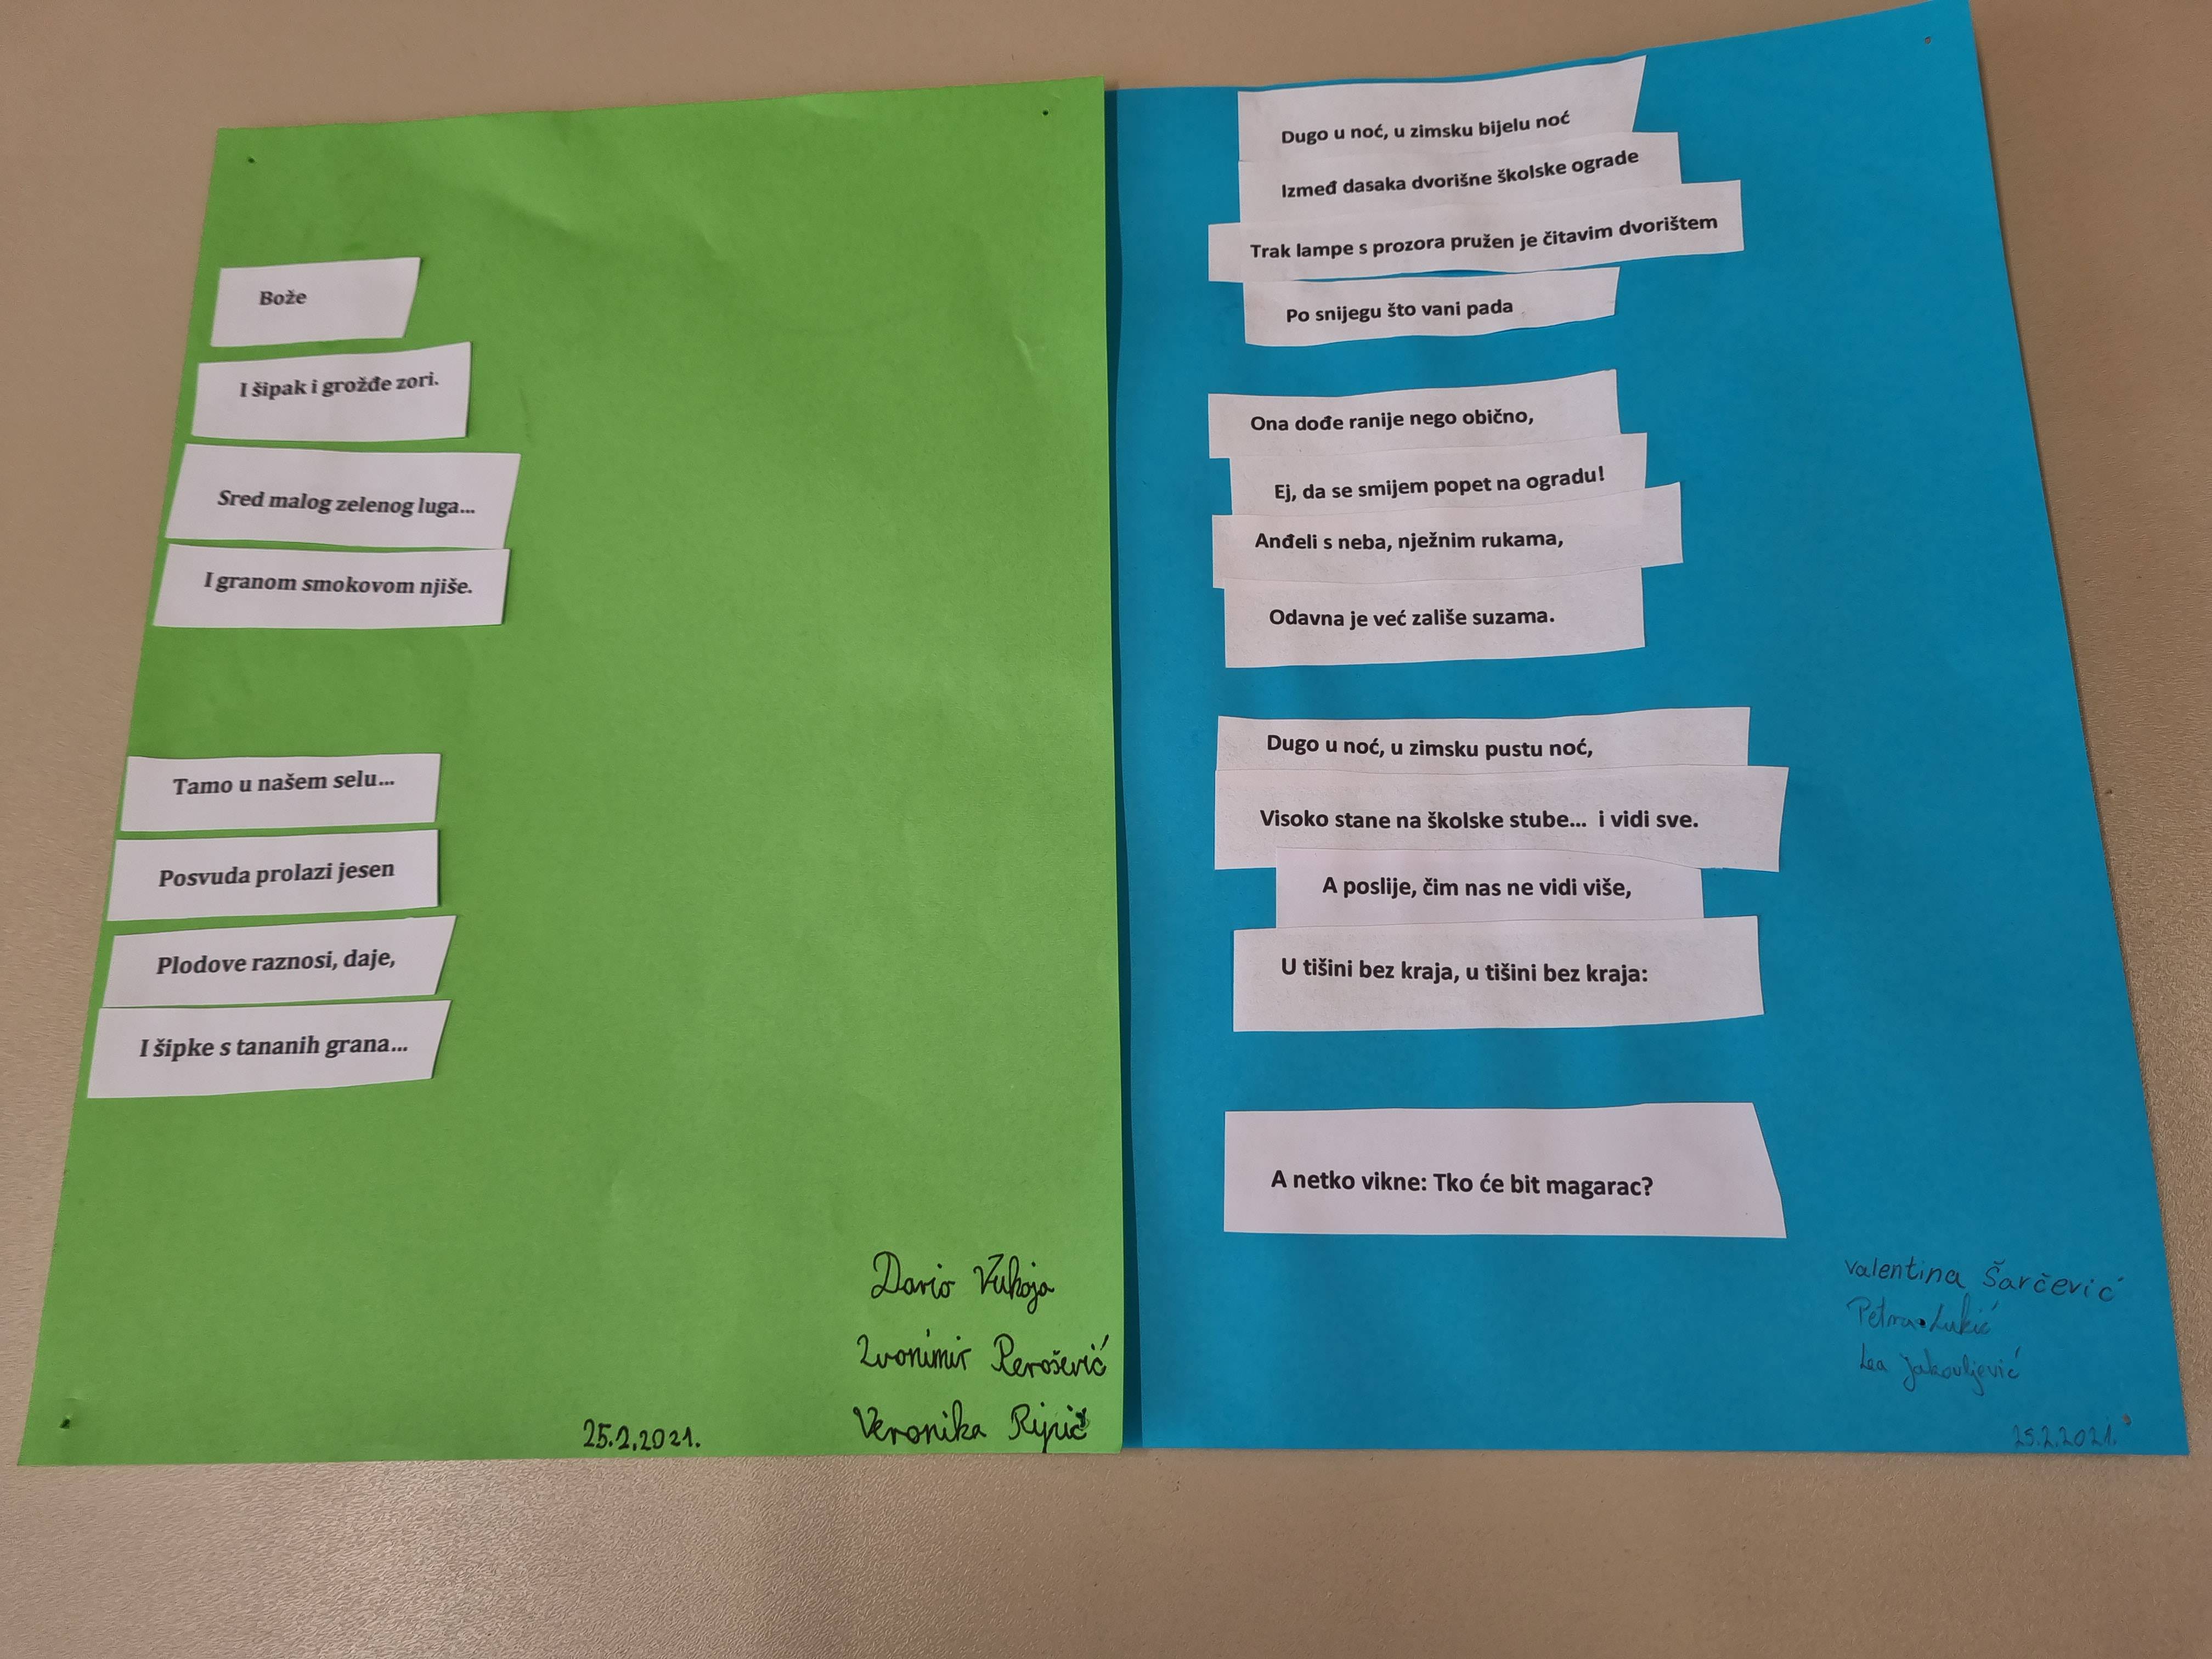 Bože
I šipak i grožđe zori.
Sred malog zelenog luga...
I granom smokovom njiše.
Tamo u našem selu...
Posvuda prolazi jesen
Plodove raznosi, daje,
I šipke s tananih grana...
Dario Vukoja
Zvonimir Perošević
Veronika
25.2.2021.
Dugo u noć, u zimsku bijelu noć
Izmeđ dasaka dvorišne školske ograde
Trak lampe s prozora pružen je čitavim dvorištem
Po snijegu što vani pada
Ona dođe ranije nego obično,
Ej, da se smijem popet na ogradu!
Anđeli s neba, nježnim rukama,
Odavna je već zališe suzama.
Dugo u noć, u zimsku pustu noć,
Visoko stane na školske stube... i vidi sve.
A poslije, čim nas ne vidi više,
U tišini bez kraja, u tišini bez kraja:
A netko vikne: Tko će bit magarac?
Valentina Šarčević
Petra Lukić
Lea Jakovljević
25.2.2021.